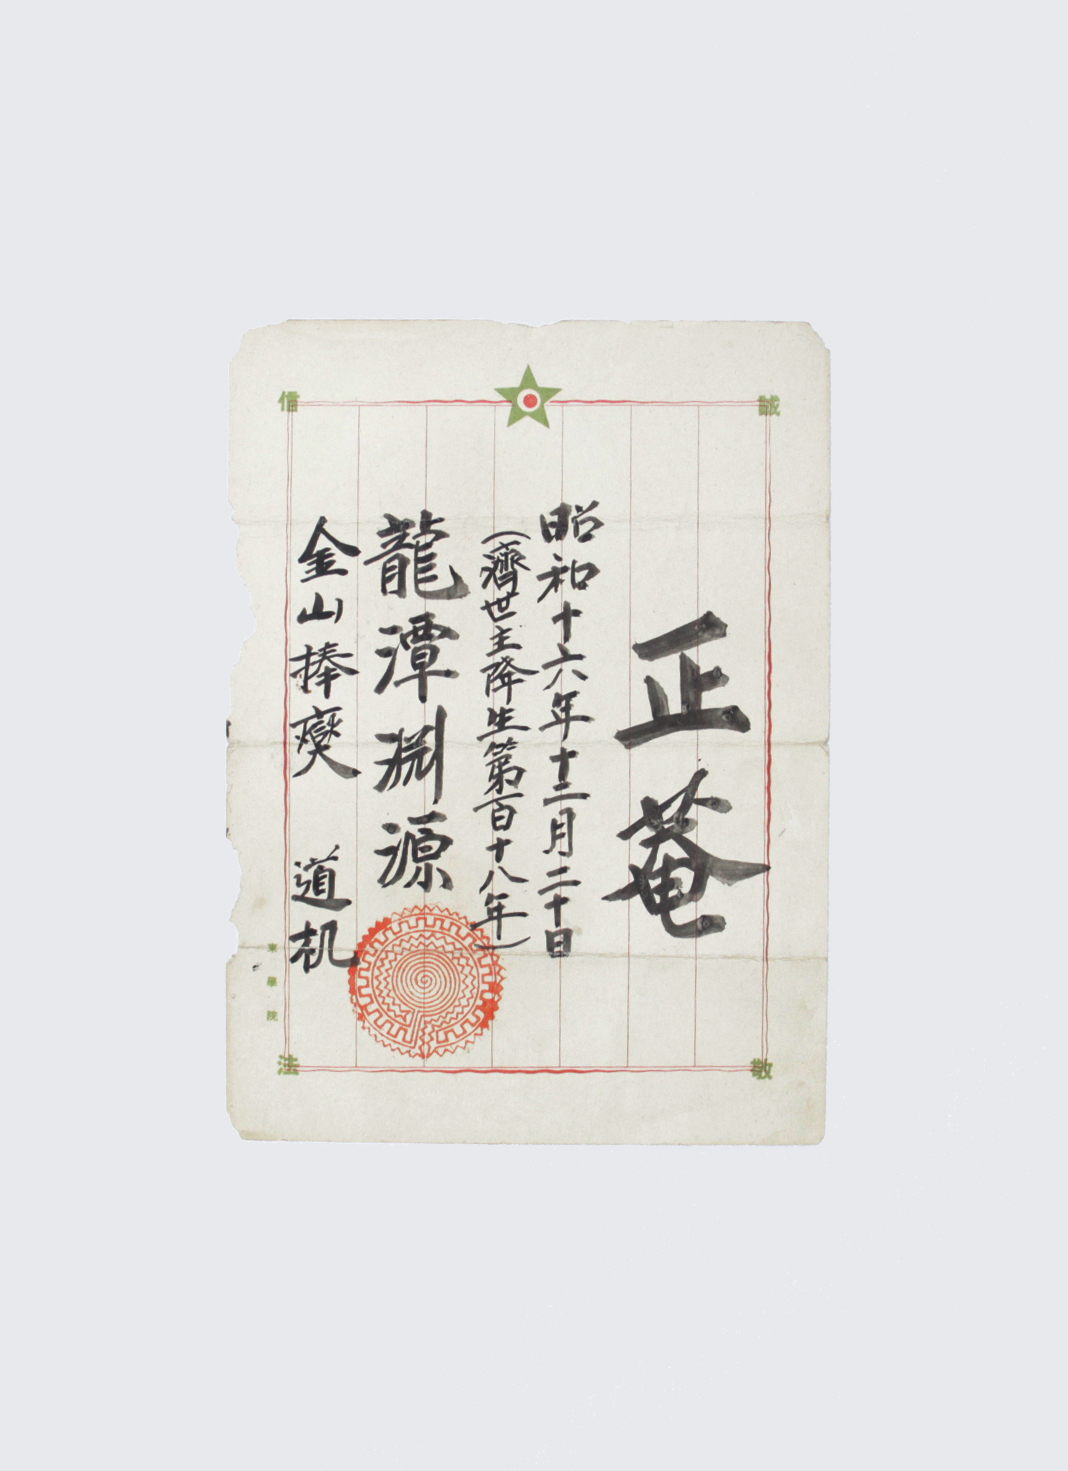 誠
信
正菴
昭和十六年十二月二十日
（濟世主降生第百十八年）
龍潭淵源
金山捧爕 道机
東學院
敬
法